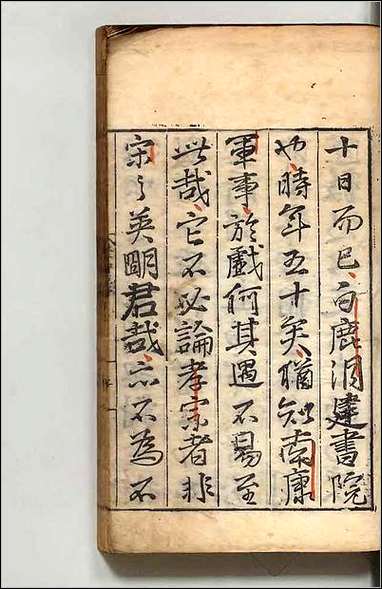 十日而已白鹿洞建書院
也時年五十矣猶知南康
軍事於戲何其遇不易至
此哉它不必論孝宗者非
宋之英明君哉亦不為不